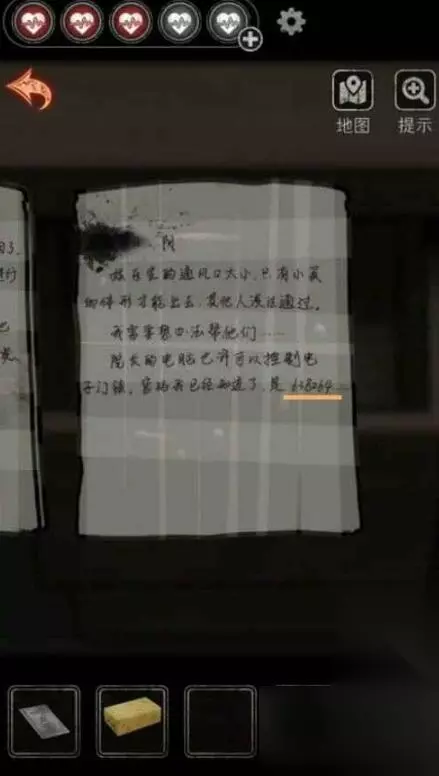 地图 提示
阴
放在室的通风口太小,只有小英
的体形才能出去,其他人没法通过。
我需要想办法帮他们……
院长的电脑也许可以控制电
子门锁,密码我已经知道了,是 638064